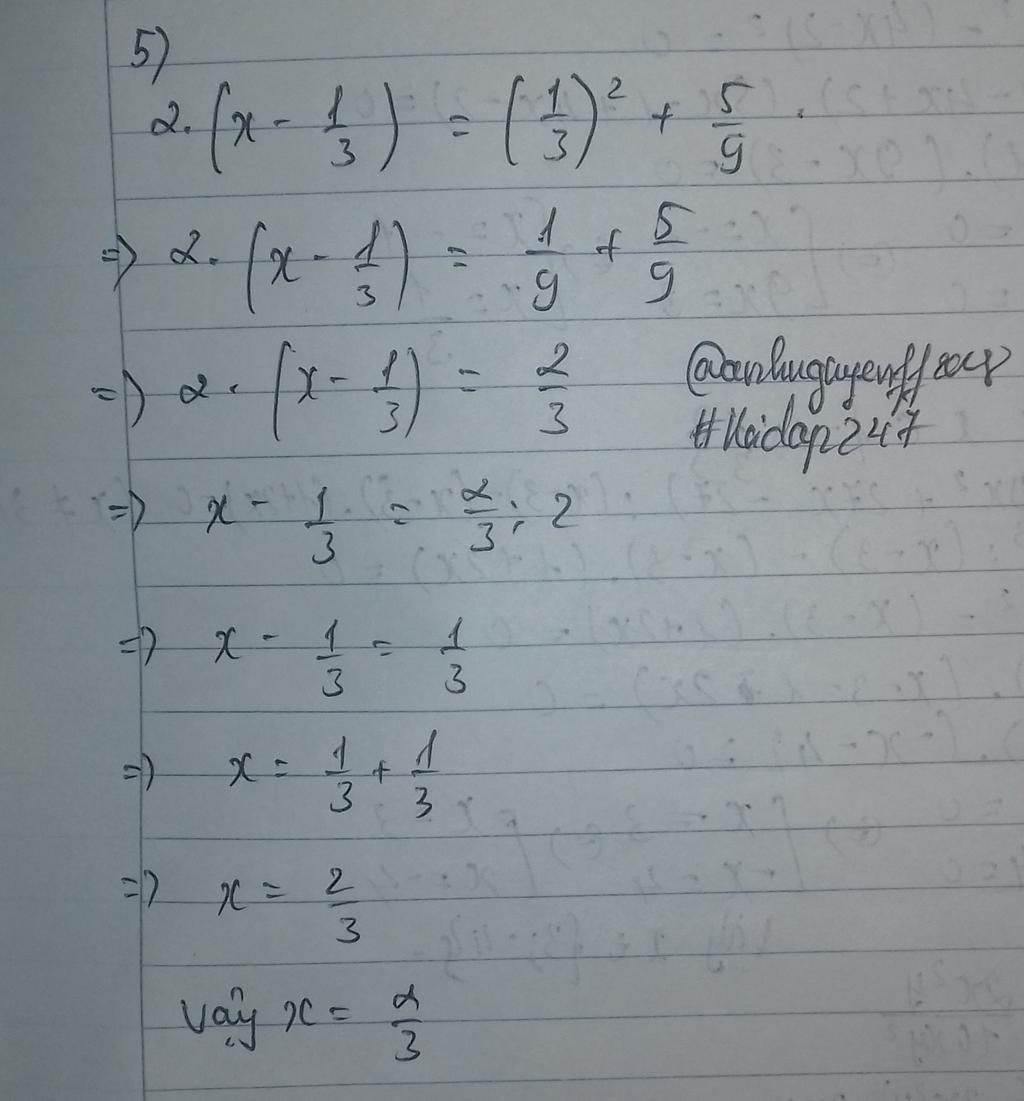 5)
2.(x - 1/3) = (1/3)² + 5/9.
=> 2.(x - 1/3) = 1/9 + 5/9
=> 2.(x - 1/3) = 2/3
#Hoidap247
=> x - 1/3 = 2/3 : 2
=> x - 1/3 = 1/3
=> x = 1/3 + 1/3
=> x = 2/3
Vậy x = 2/3